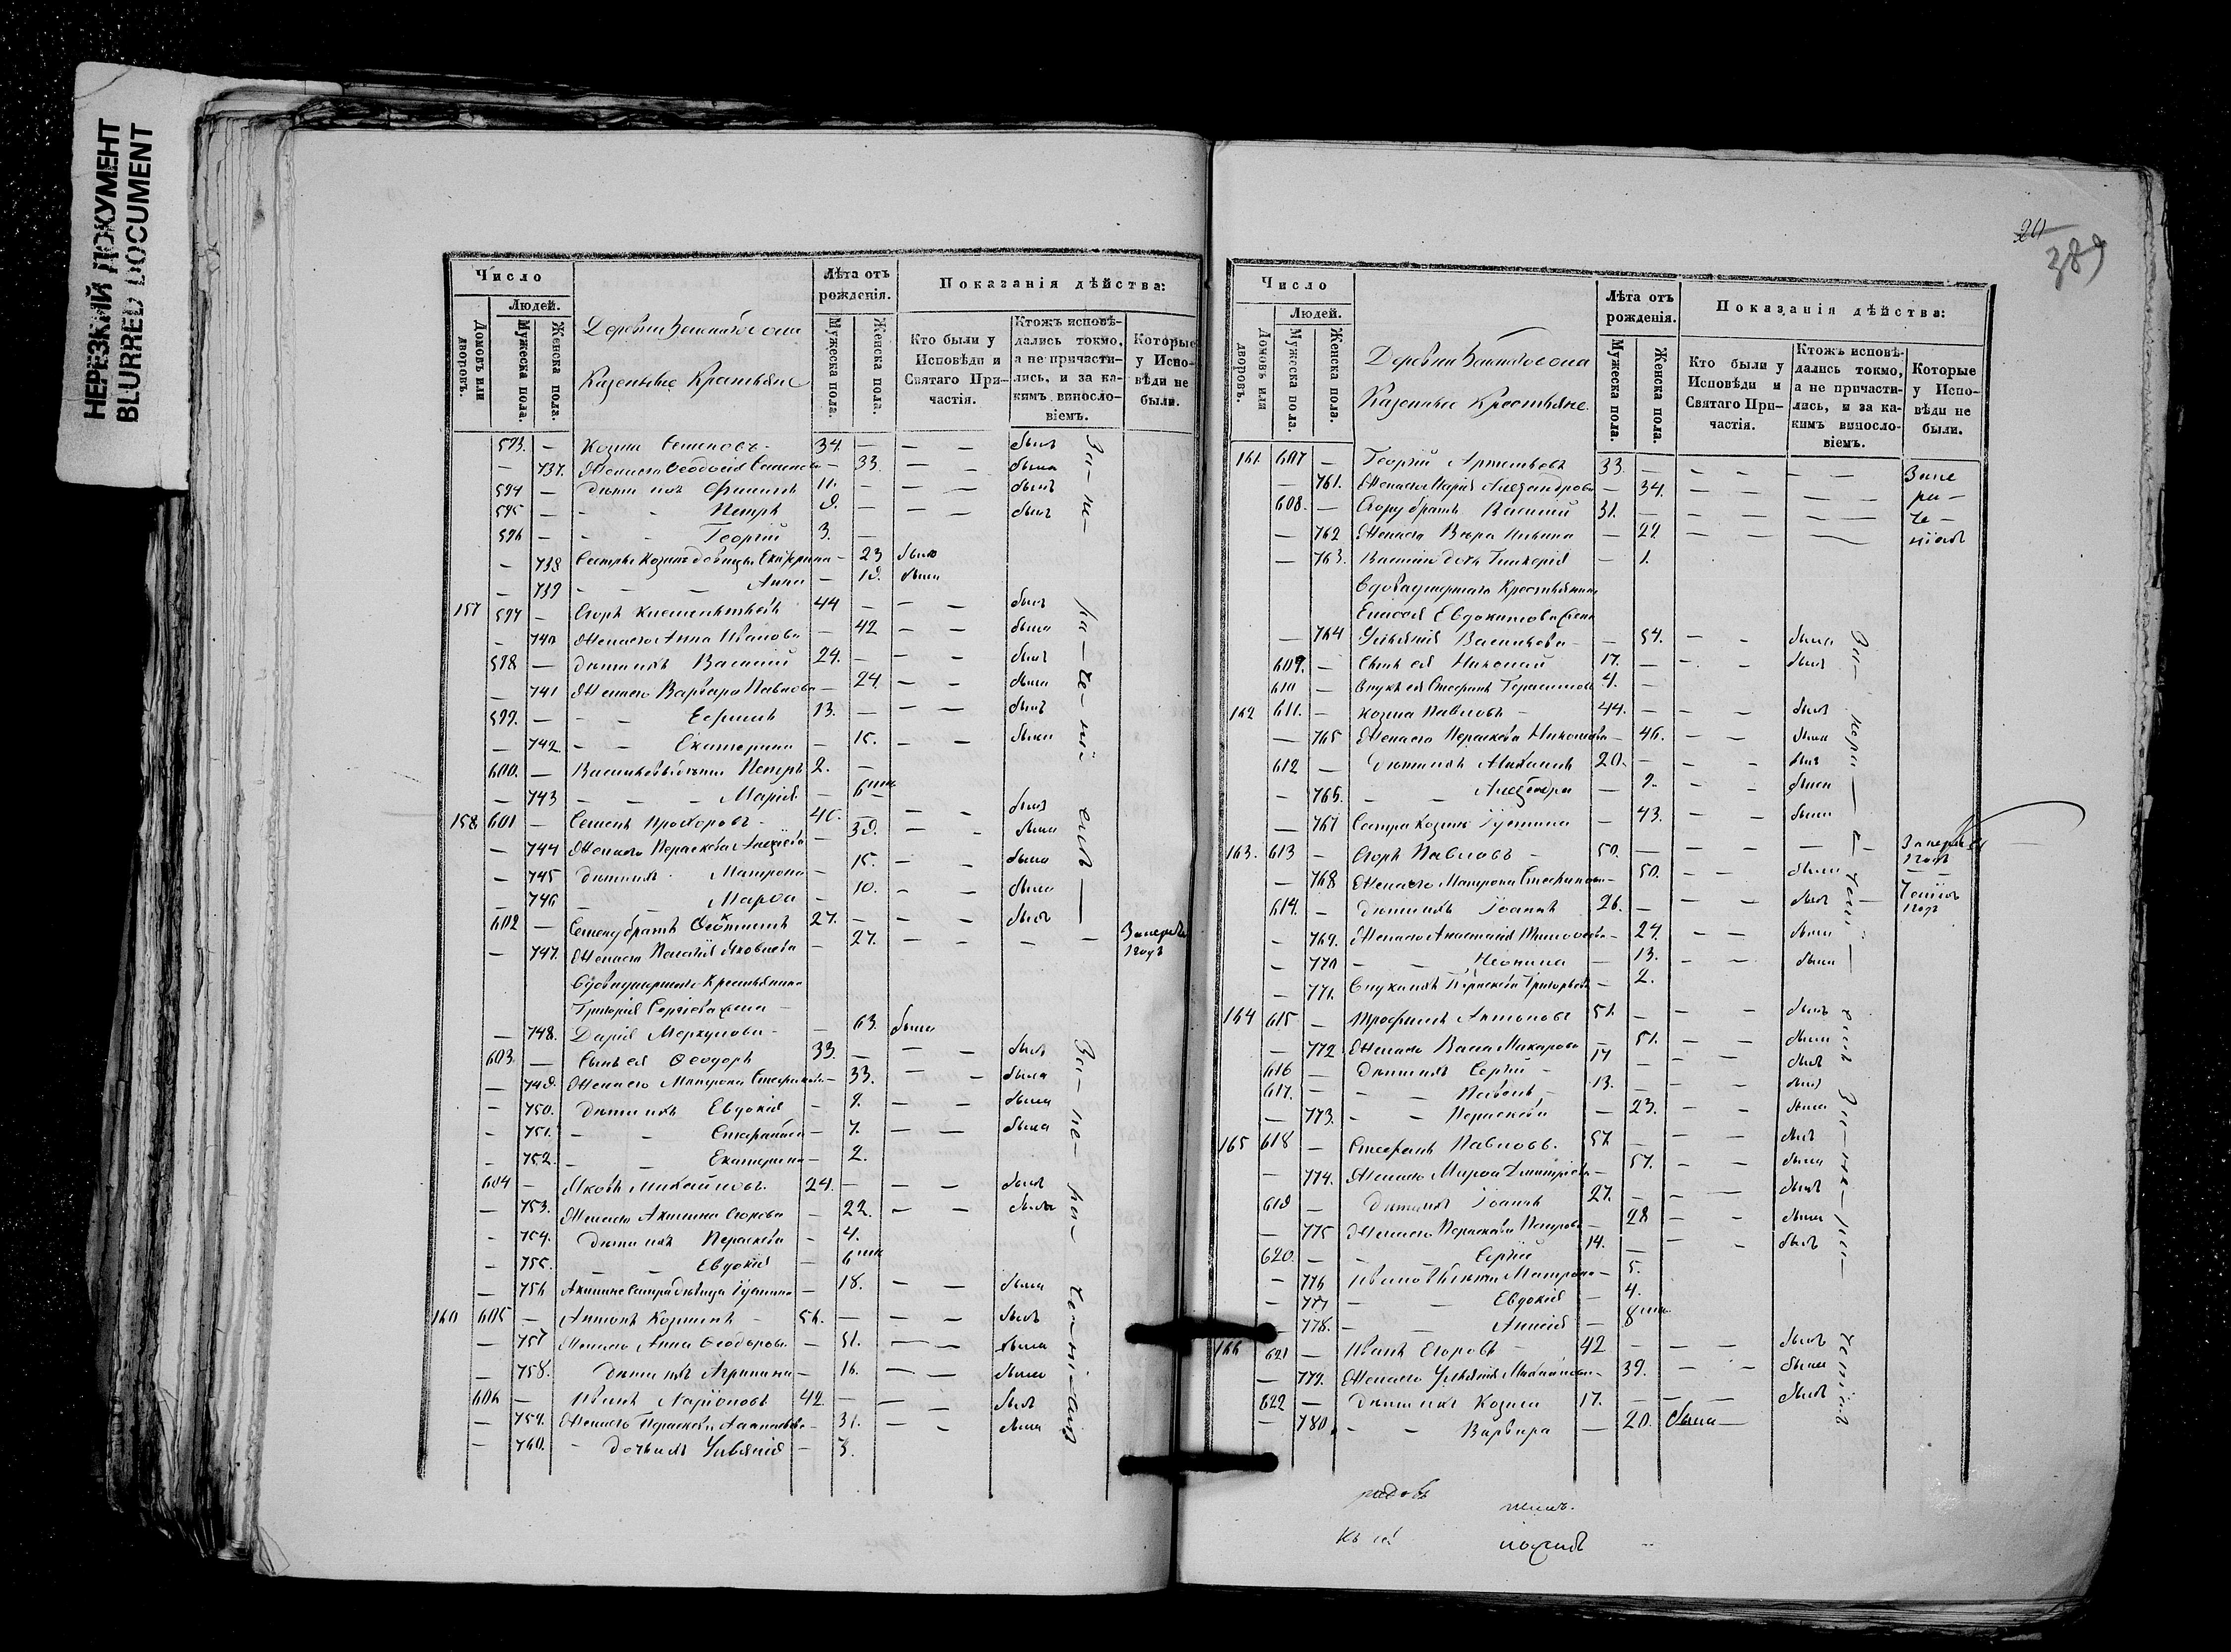 НЕРЕЗКИЙ ДОКУМЕНТ
BLURRED DOCUMENT
Число
Людей.
Домовъ или дворовъ.
Мужеска пола.
Женска пола.
Деревни
Казенные Крестьяне
Лѣта отъ рожденія.
Мужеска пола.
Женска пола.
Показанія дѣйства:
Кто были у Исповѣди и Святаго Причастія.
Ктожъ исповѣдались токмо, а не причастились, и за какимъ винословіемъ.
Которые у Исповѣди не были.
593. — Козма Семеновъ 34. — — — былъ
— 737. Жена его Ѳеодосія Семенова — 33. — — была
594 — Дѣти ихъ Филиппъ 11. — — — былъ
595 — — — Петръ 9. — — — былъ
596 — — — Георгій 3. —
— 738 Сестры Козмы дѣвицы Екатерина — 23 была
— 739 — — — Анна — 19. была
157 597 — Егоръ 44 — — — былъ
— 740 Жена его Анна Иванова — 42 — — была
598 — Дѣти ихъ Василій 24. — — — былъ
— 741 Жена его Варвара Павлова — 24. — — была
599. — — — Ефимъ 13. — — — былъ
— 742 — — Екатерина — 15. — — была
600. — Васильевы дѣти Петръ 2. —
— 743 — — — Марія — 6
158 601 — Семенъ Прохоровъ 40. — — — былъ
— 744 Жена его Параскева Алексѣева — 39. — — была
— 745 Дѣти ихъ Матрона — 15. — — была
— 746 — — Марѳа — 10. — — была
602 — Семену братъ Ѳеоктистъ 27. — — — былъ
— 747. Жена его Пелагія Яковлева — 27. — — — — За нерад. 1 годъ
Вдова умершаго Крестьянина
Григорія Сергѣева жена
— 748. Дарія Меркулова — 63. была
603. — Сынъ ея Ѳеодоръ 33. — — — былъ
— 749. Жена его Матрона Стефанова — 33. — — была
— 750. Дѣти ихъ Евдокія — 9. — — была
— 751. — — Стефанида — 7. — — была
— 752. — — Екатерина — 2.
604 — Яковъ Михайловъ 24. — — — былъ
— 753. Жена его Акилина Егорова — 22. — — была
— 754. Дѣти ихъ Параскева — 4.
— 755. — — Евдокія — 6
— 756 Акилины сестра дѣвица Іустина — 18. — — была
160 605 — Антонъ Козминъ 56. — — — былъ
— 757 Жена его Анна Ѳеодорова — 51. — — была
— 758. Дѣти ихъ Агрипина — 16. — — была
606 — Иванъ Ларіоновъ 42. — — — былъ
— 759. Жена его Параскева — 31. — — была
— 760. — Дочь ихъ Уліянія — 3.
За не ра че ні емъ
За не ра че ніемъ
20
389
Число
Людей.
Домовъ или дворовъ.
Мужеска пола.
Женска пола.
Деревни
Казенные Крестьяне.
Лѣта отъ рожденія.
Мужеска пола.
Женска пола.
Показанія дѣйства:
Кто были у Исповѣди и Святаго Причастія.
Ктожъ исповѣдались токмо, а не причастились, и за какимъ винословіемъ.
Которые у Исповѣди не были.
161. 607 — Георгій Артемьевъ 33. — — — — — За не
— 761. Жена его Марія Александрова — 34. — — — — ра —
608. — Егору братъ Василій 31. — — — — — че —
— 762 Жена его Вѣра Ильина — 22 — — — ніемъ
— 763. Василія дочь Гликерія — 1.
Вдова умершаго Крестьянина
Елисея Евдокимова жена
— 764 Уліянія Васильева — 54. — — была
609. — Сынъ ея Николай 17. — — — былъ
610 — Внукъ ея Стефанъ Герасимовъ 4. —
162 611. — Козма Павловъ — 44. — — — былъ
— 765 Жена его Параскева Николаева — 46. — — была
612 — Дѣти ихъ Михаилъ 20. — — — былъ
— 766. — — Александра — 9. — — была
— 767 Сестра Козмы Іустина — 43. — — была
163. 613 — Егоръ Павловъ — 50. — — — — — За нерад. 1 годъ
— 768 Жена его Матрона Стефанова — 50. — — была
614. — Дѣти ихъ Іоаннъ 26. — — — былъ 1 годъ
— 769. Жена его Анастасія Тимоѳеева — 24. — — была
— 770 — — Неонила — 13. — — была
— 771. Внука ихъ Параскева Григорьева — 2.
164 615 — Трофимъ Антоновъ 51. — — — былъ
— 772 Жена его Васса Макарова — 51. — — была
616 — Дѣти ихъ Сергій — 17 — — — былъ
617. — — — Павелъ 13. — — — былъ
— 773. — — Параскева — 23. — — была
165 618 — Стефанъ Павловъ. 57. — — — былъ
— 774. Жена его Марѳа Димитріева — 57. — — была
619 — Дѣти ихъ Іоаннъ 27. — — — былъ
— 775 Жена его Параскева Петрова — 28 — — была
620. — — — Сергій 14. — — — былъ
— 776 Ивановы дѣти Матрона — 5.
— 777 — — Евдокія — 4.
— 778. — — Анисія — 8
166 621 — Иванъ Егоровъ — 42 — — — былъ
— 779. Жена его Уліянія Михайлова — 39. — — была
622 — Дѣти ихъ Козма 17. — — — былъ
— 780. — — Варвара — 20. была —